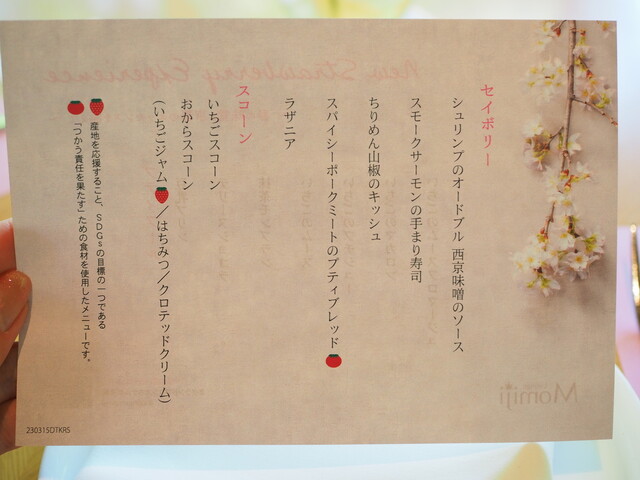 セイボリー
シュリンプのオードブル 西京味噌のソース
スモークサーモンの手まり寿司
ちりめん山椒のキッシュ
スパイシーポークミートのプティブレッド
ラザニア
スコーン
いちごスコーン
おからスコーン
(いちごジャム／はちみつ／クロテッドクリーム)
産地を応援すること、SDGsの目標の一つである
「つかう責任を果たす」ための食材を使用したメニューです。
230315DTKRS
New Strawberry Experience
Momiji